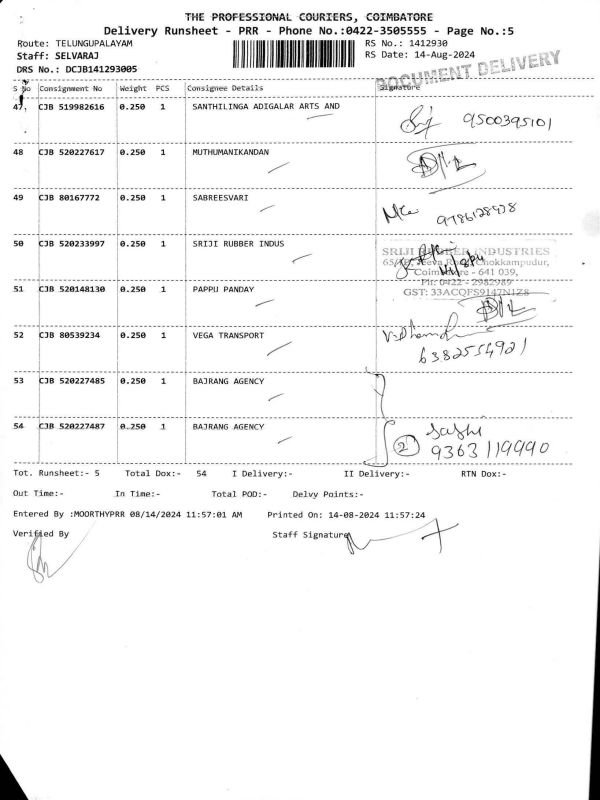 THE PROFESSIONAL COURIERS, COIMBATORE
Delivery Runsheet - PRR - Phone No.:0422-3505555 - Page No.:5
Route: TELUNGUPALAYAM RS No.: 1412930
Staff: SELVARAJ RS Date: 14-Aug-2024
DRS No.: DCJB141293005
DOCUMENT DELIVERY
S No Consignment No Weight PCS Consignee Details Signature
47 CJB 519982616 0.250 1 SANTHILINGA ADIGALAR ARTS AND
9500395101
48 CJB 520227617 0.250 1 MUTHUMANIKANDAN
49 CJB 80167772 0.250 1 SABREESVARI
50 CJB 520233997 0.250 1 SRIJI RUBBER INDUS
SRIJI RUBBER INDUSTRIES
Chokkampudur,
Coimbatore - 641 039,
Ph: 0422 - 2982989
GST: 33ACQFS9147N1Z8
51 CJB 520148130 0.250 1 PAPPU PANDAY
52 CJB 80539234 0.250 1 VEGA TRANSPORT
6382554921
53 CJB 520227485 0.250 1 BAJRANG AGENCY
54 CJB 520227487 0.250 1 BAJRANG AGENCY
2
9363119990
Tot. Runsheet:- 5 Total Dox:- 54 I Delivery:- II Delivery:- RTN Dox:-
Out Time:- In Time:- Total POD:- Delvy Points:-
Entered By :MOORTHYPRR 08/14/2024 11:57:01 AM Printed On: 14-08-2024 11:57:24
Verified By Staff Signature